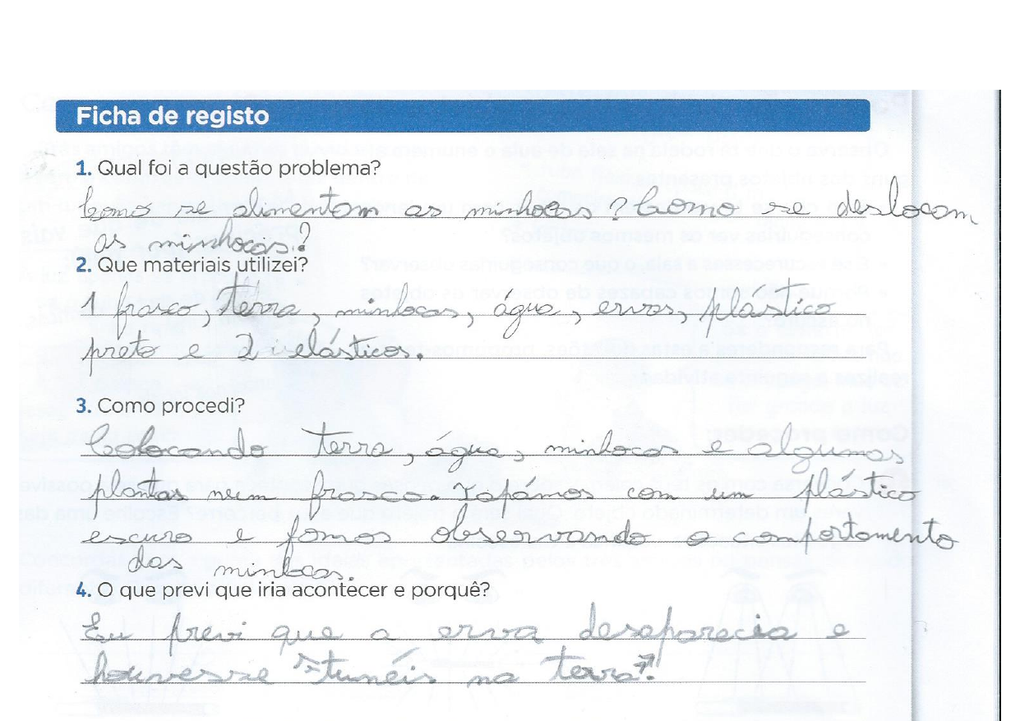 Ficha de registo
1. Qual foi a questão problema?
Como se alimentam as minhocas? Como se deslocam
as minhocas?
2. Que materiais utilizei?
1 frasco, terra, minhocas, água, ervas, plástico
preto e 2 elásticos.
3. Como procedi?
Colocando terra, água, minhocas e algumas
plantas num frasco. Tapámos com um plástico
escuro e fomos observando o comportamento
das minhocas.
4. O que previ que iria acontecer e porquê?
Eu previ que a erva desaparecia e
houvesse "tunéis na terra".